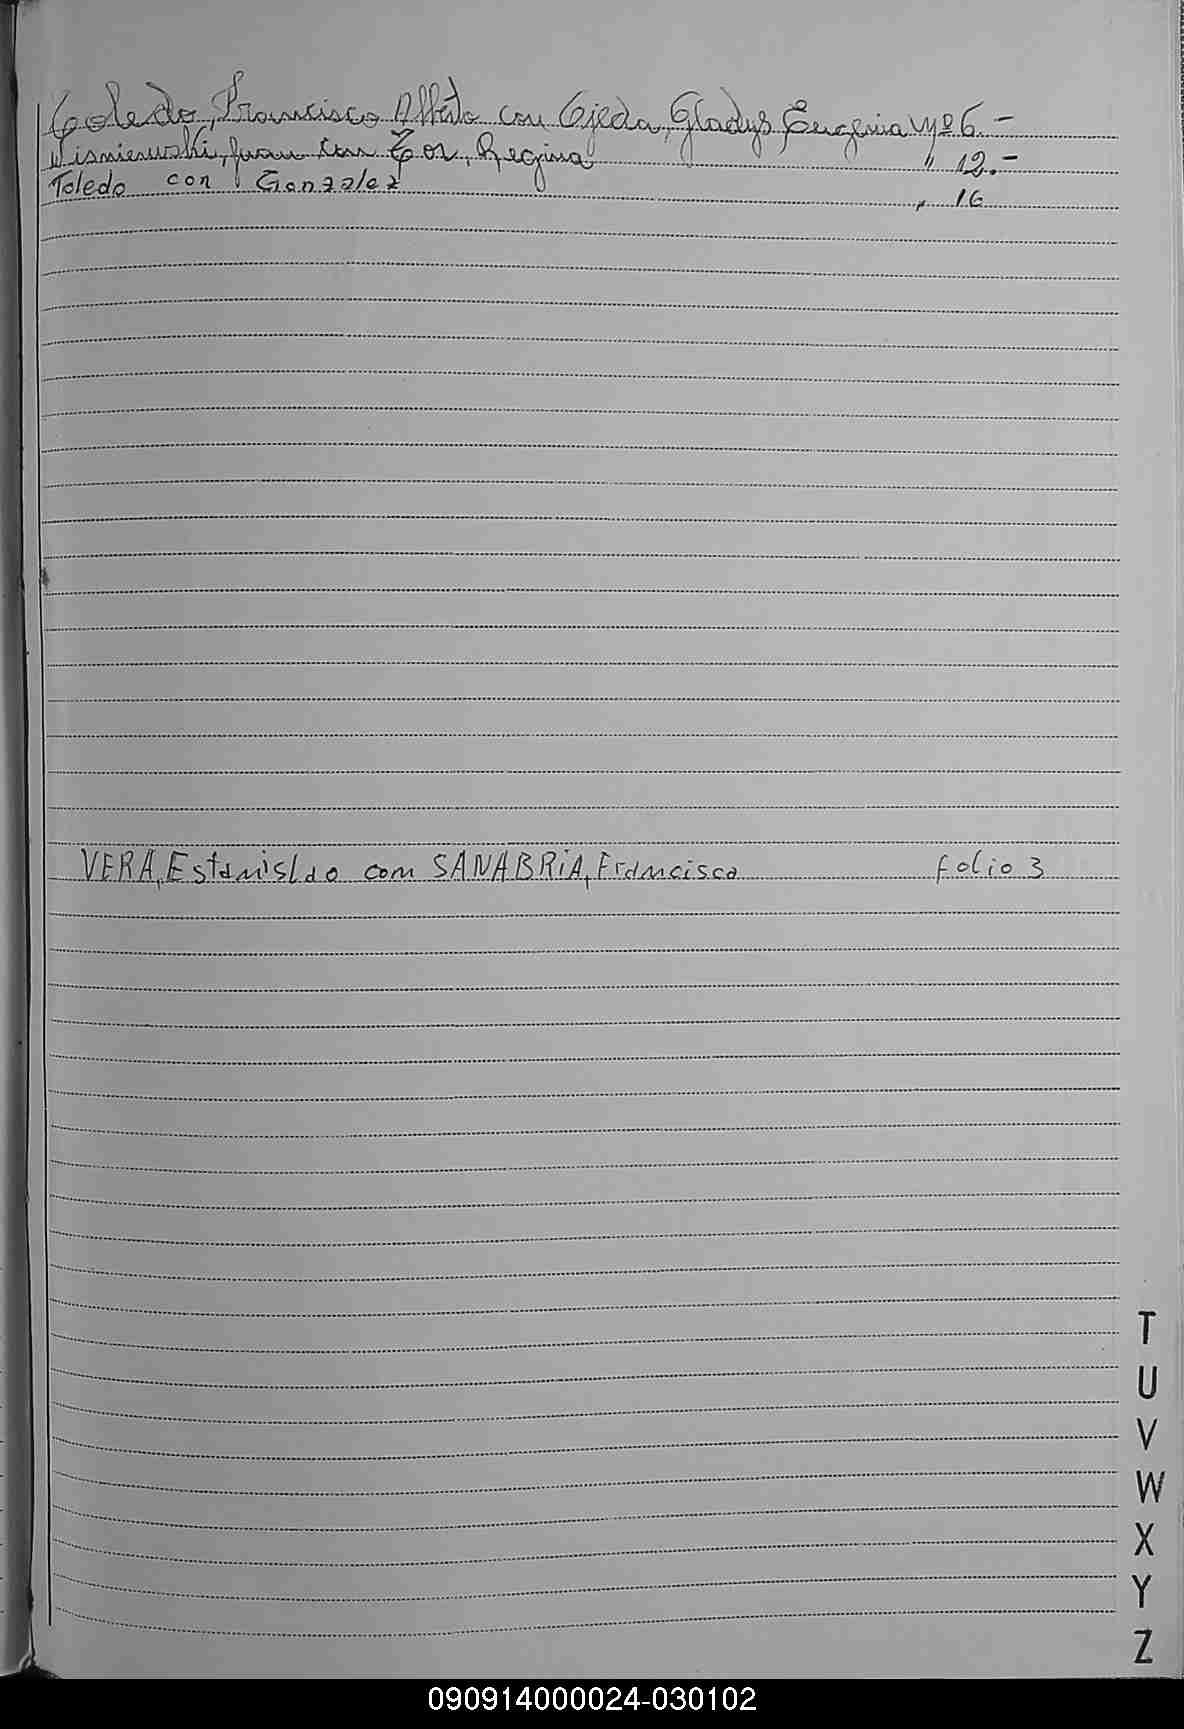 Toledo, Francisco Alberto con Ojeda, Gladys Eugenia Nº 6.-
Wisniewski, Juan con Tor, Regina " 12.-
Toledo con Gonzalez " 16
VERA, Estanislao con SANABRIA, Francisca folio 3
T
U
V
W
X
Y
Z
090914000024-030102